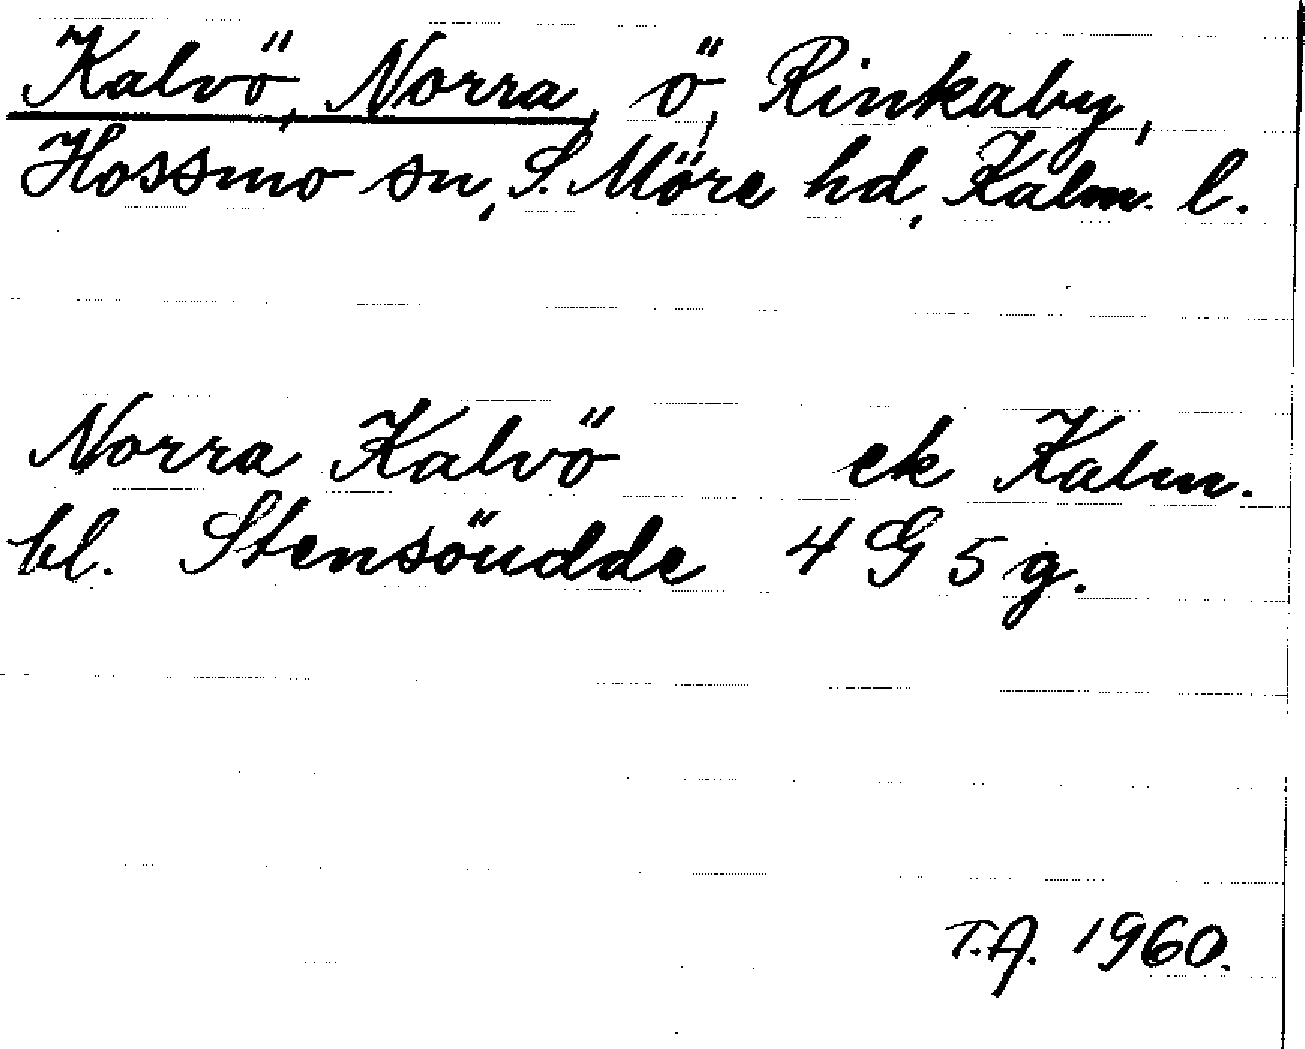 Kalvö, Norra, ö, Rinkaby,
Hossmo sn, S. Möre hd, Kalm. l.
Norra Kalvö ek Kalm.
bl. Stensöudde 4 G 5 g.
T.A. 1960.